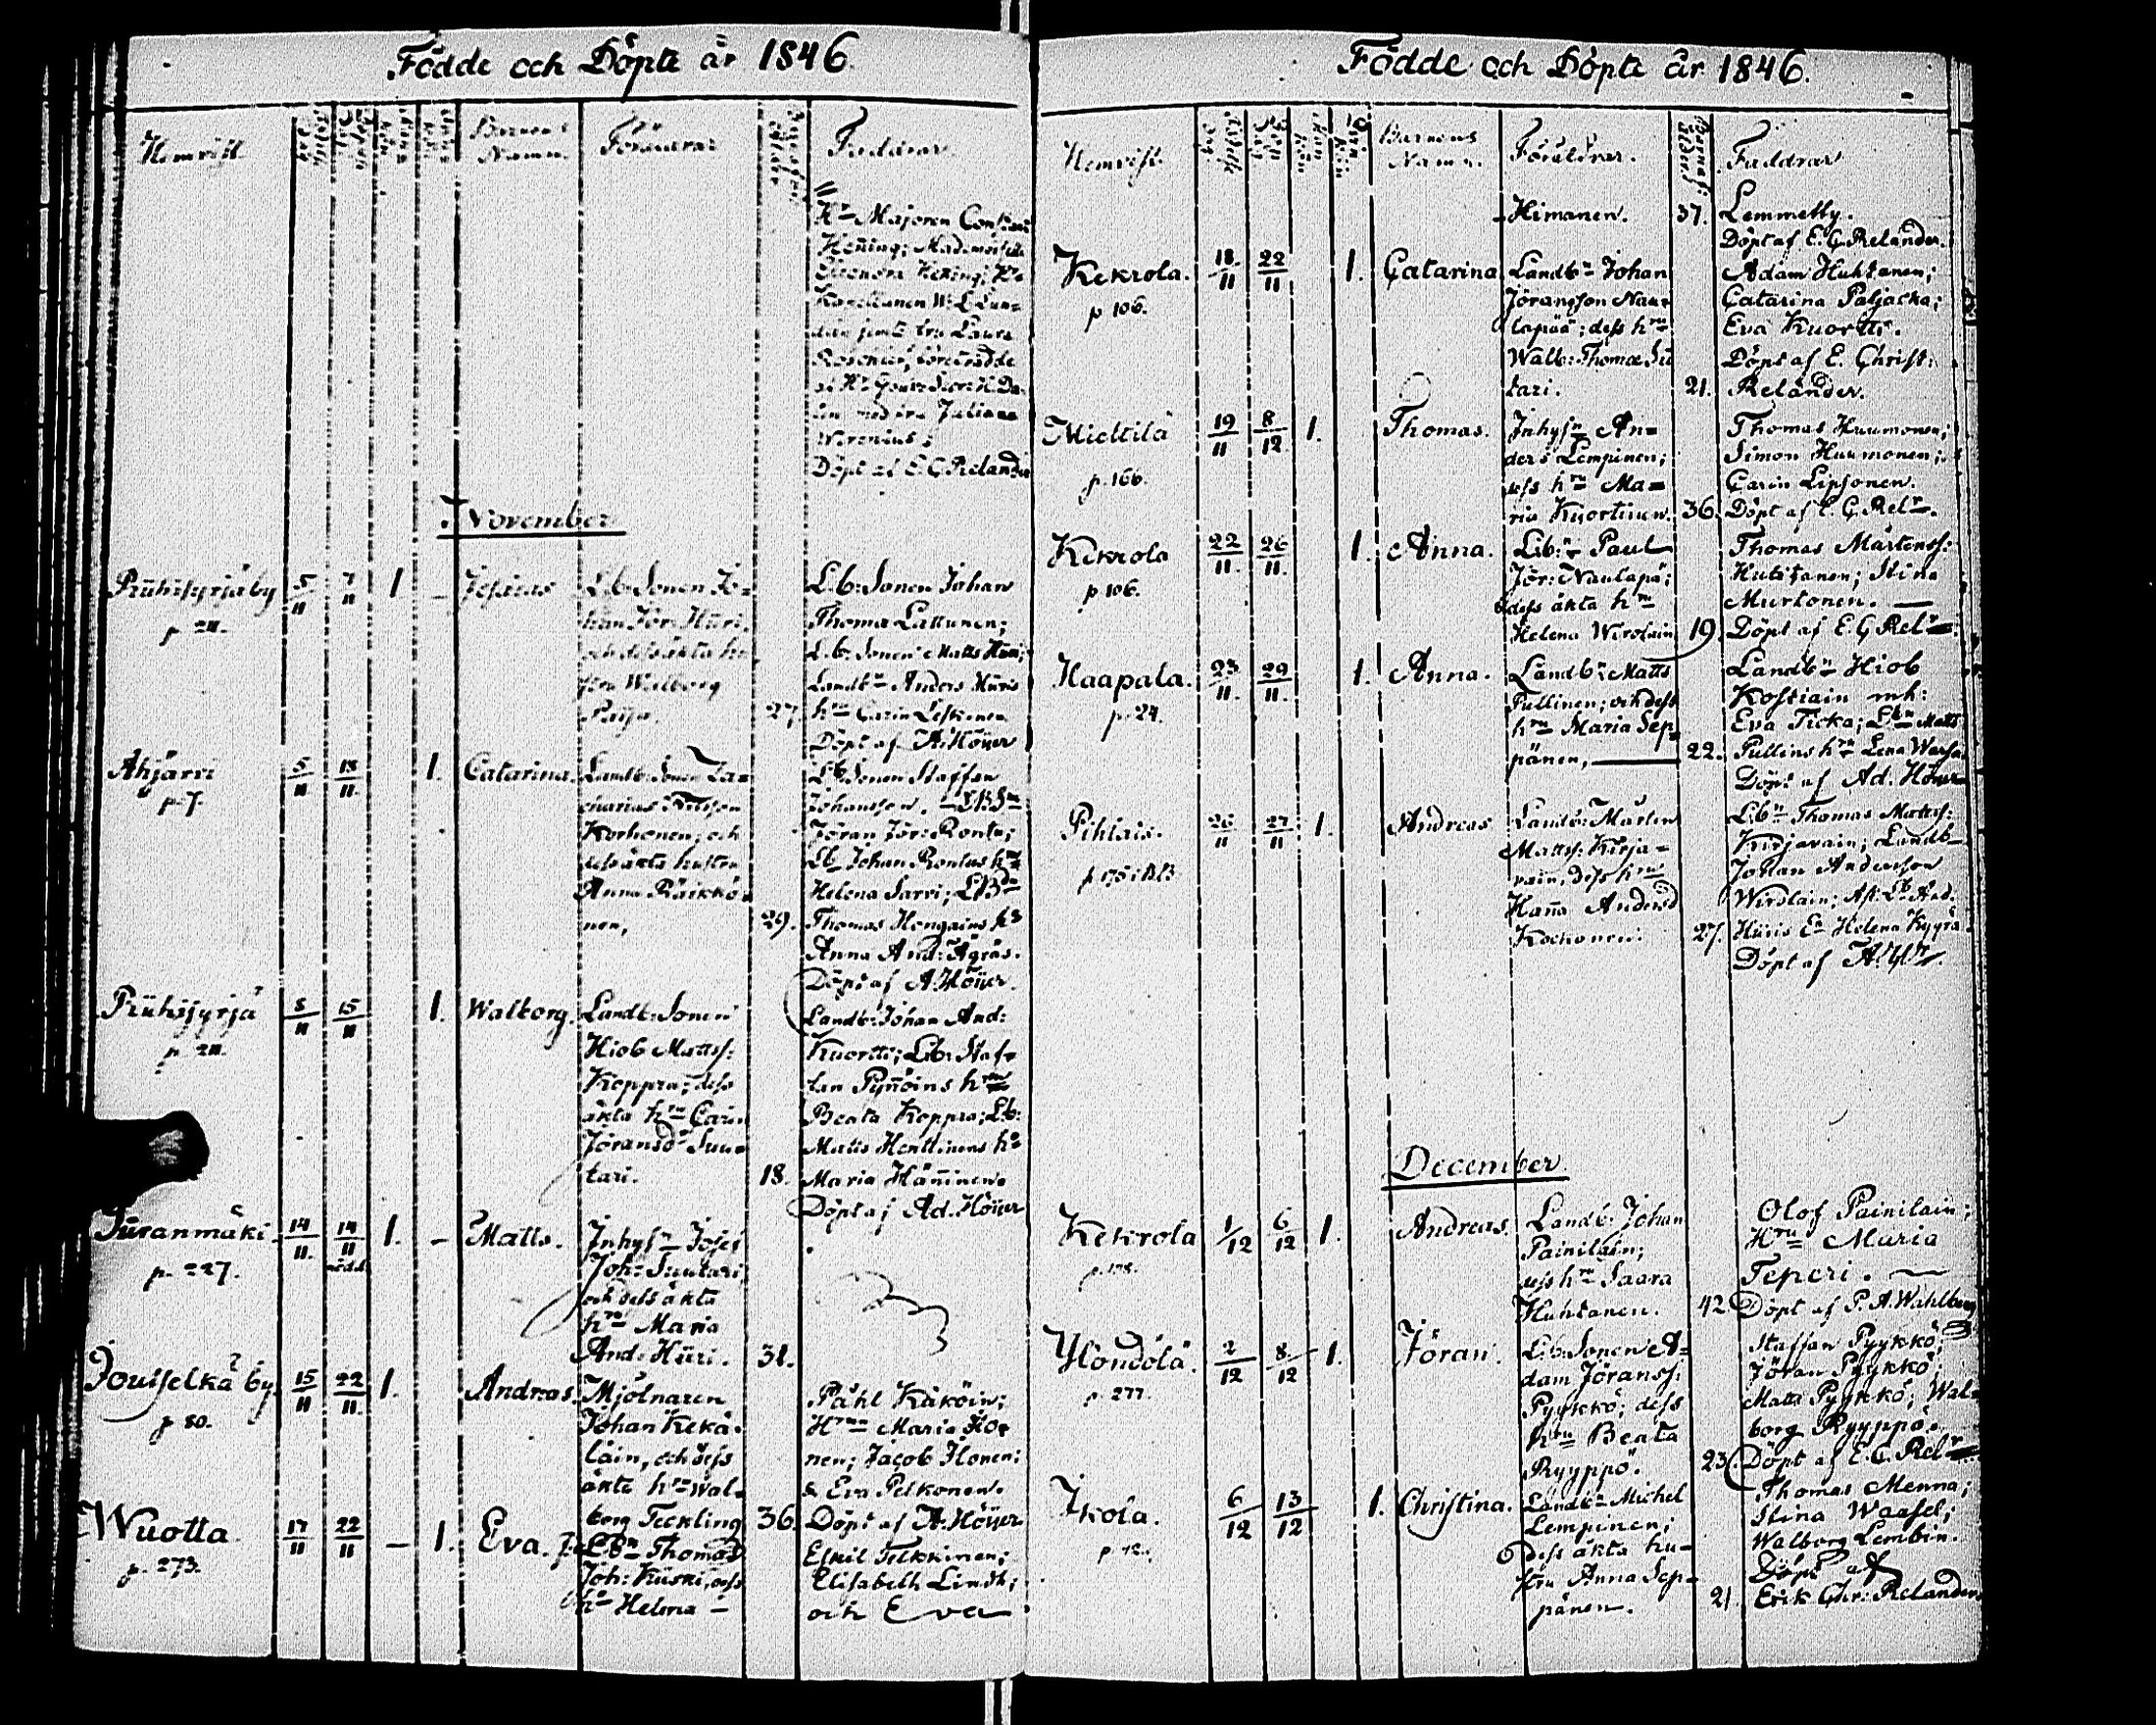 Födde och Döpte år 1846.
Hemvist.
Barnens
Namn.
Föräldrar
Faddrar
Hr Majoren
Kapellanen W. L.
Juliana
Döpt af E. C. Relander
November
p. 211.
5/11 7/11 1 – Josias
Lb: Sonen Jo=
han Jör: Hüri,
och dess äkta hu
stru Walborg
27.
Lb: Sonen Johan
Thomæ Lattunen;
Lb: Sonen Matts Hüri;
Landbn Anders Hüris
hru Carin Leskinen
Döpt af A. Höijer
Ahjärvi
p. 7.
5/11 18/11. 1. Catarina.
Landb: Sonen Za=
charias
Korhonen; och
dess äkta hustru
Anna Räikkö=
nen,
29.
Lb: Sonen Staffan
Johansson.
Jöran Jör: Rontu;
Lb: Johan Rontus hru
Helena Sarvi;
Thomas Hongains
Anna And: Ägräs.
Döpt af A. Höijer.
p. 211.
8/11 15/11 1. Walborg.
Landb: Sonen
Hiob Matts:
Koppra; dess
äkta hru Carin
Jöransdr Suu=
tari.
18.
Landb: Johan And:
Kuortti; Lb: Staf=
fan Pynnöins hru
Beata Koppra; Lb:
Matts Henttinens
Maria Hänninen
Döpt af Ad. Höijer
p. 227.
14/11. 14/11 1. – Matts.
Inhysn Josef
Joh: Suutari,
och dess äkta
hru Maria
And: Hüri.
31.
Jouhselkä by.
p. 80.
15/11 22/11. 1. Andreas.
Mjölnaren
Johan Kekä=
läin, och dess
äkta hru Wal=
borg Teckling
36.
Påhl Käköin;
Hrn Maria Ilo=
nen; Jacob Ilonen;
& Eva Pelkonen.
Döpt af A. Höijer
Wuotta
p. 273.
17/11 22/11 – 1. Eva.
Lbn Thomas
Joh: Kiiski, dess
hru Helena –
Eskil Tilkkinen;
Elisabeth Lindh;
och Eva
Födde och Döpte år 1846.
Hemvist.
Barnens
Namn.
Föräldrar.
Faddrar
Himanen.
37.
Lemmetty.
Döpt af E. C. Relander.
Kekrola.
p. 106.
18/11 22/11 1. Catarina
Landbn Johan
Jöransson Nau=
lapää; dess hru
Walb: Thomæ Su
tari.
21.
Adam Huhtanen;
Catarina Paljacka;
Eva Kuortti.
Döpt af E. Christ:
Relander.
Mielttilä
p. 166.
19/11 8/12 1. Thomas.
Inhysn An=
ders Lempinen;
dess hru Ma=
ria Kuortinen.
36.
Thomas Huumonen;
Simon Huumonen;
Carin Lipsonen.
Döpt af E. C. Relr.
Kekrola
p. 106.
22/11. 26/11. 1. Anna.
Lb:n Paul
Jör: Naulapä;
dess äkta hru
Helena Wirolain
19.
Thomas Mårtenss:
Huhtanen; Stina
Murtonen. —
Döpt af E. C. Relr.
Haapala.
p. 24.
23/11. 29/11. 1. Anna.
Landbn Matts
Pullinen; och dess
hru Maria Sep=
pänen,
22.
Landbn Hiob
Kostiain mh:
Eva Ticka; Lbn Matts
Pullins hru Lena
Döpt af Ad. Höijer
Pihlais.
26/11 27/11 1. Andreas
Landb: Mårten
Matts: Kirja=
vain, dess hru
Hanna Andersd
Kockonen.
27.
Lbn Thomas Matts:
Kirjavain; Landb
Johan Andersson
Wirolain; And.
Hüris Helena
Döpt af
December.
Kekrola
1/12 6/12 1. Andreas.
Landb: Johan
Painilain;
dess hru Saara
Huhtanen.
42
Olof Painilain;
Hru Maria
Teperi. —
Döpt af P. A. Wahlberg
Ylöndölä.
p. 277.
2/12 8/12 1. Jöran.
Lb: Sonen A=
dam Jöranss:
Pyykkö; dess
hru Beata
Ryyppö.
23.
Staffan Pyykkö;
Jöran Pyykkö;
Matts Pyykkö; Wal=
borg Ryyppö.
Döpt af E. C. Relr
Ikola.
p. 72.
6/12 13/12 1. Christina.
Landbn Michel
Lempinen;
dess äkta hu=
stru Anna Sep=
pänen.
21
Thomas Menna;
Stina Waasel;
Walborg Lembin.
Döpt af
Erik Chr: Relander